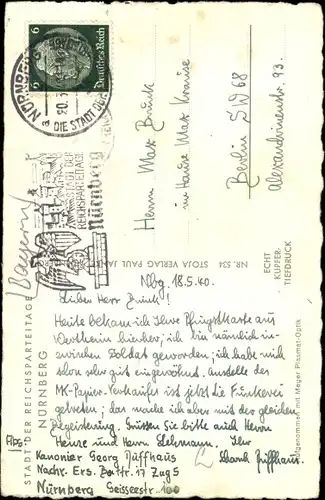 6 6
Deutsches Reich
NÜRNBERG
DIE STADT DER
DIE STADT DER
REICHSPARTEITAGE
Nürnberg
Bayern!
Herrn Max Brink
im Hause Max Krause
Berlin SW 68
Alexandrinenstr. 93.
NR. 534 STOJA VERLAG PAUL JAN
ECHT
KUPFER-
TIEFDRUCK
STADT DER REICHSPARTEITAGE
NÜRNBERG
Aufgenommen mit Meyer Plasmat-Optik
Nbg. 18.5.40.
Lieber Herr Brink!
Heute bekam ich Ihre Pfingstkarte aus
Wertheim hierher; ich bin nämlich in-
zwischen Soldat geworden; ich habe mich
schon sehr gut eingewöhnt. Anstelle des
MK-Papier-Verkäufers ist jetzt die Funkerei
getreten; das mache ich aber mit der gleichen
Begeisterung. Grüssen Sie bitte auch Herrn
Heinze und Herrn Lehmann. Ihr
Abs:
Kanonier Georg Püffhaus
Nachr. Ers. Battr. 17 Zug 5
Nürnberg Geisseestr. 100